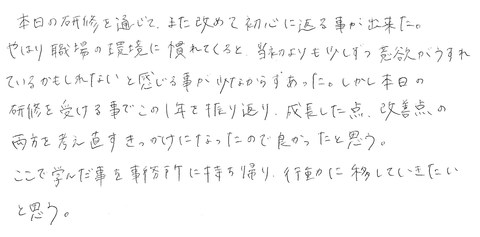 本日の研修を通じて、また改めて初心に返る事が出来た。
やはり職場の環境に慣れてくると、当初よりも少しずつ意欲がうすれ
ているかもしれないと感じる事が少なからずあった。しかし本日の
研修を受ける事でこの1年を振り返り、成長した点、改善点の
両方を考え直すきっかけになったので良かったと思う。
ここで学んだ事を事務所に持ち帰り、行動に移していきたい
と思う。